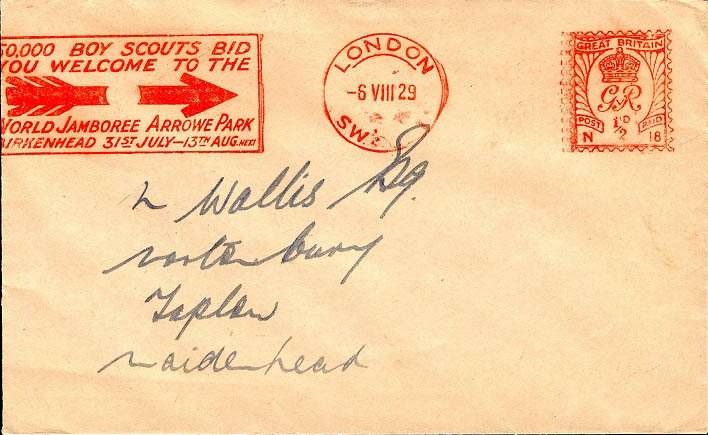 50,000 BOY SCOUTS BID
YOU WELCOME TO THE
WORLD JAMBOREE ARROWE PARK
BIRKENHEAD 31ST JULY-13TH AUG. NEXT
LONDON
-6 VIII 29
S.W.1/2
GREAT BRITAIN
GvR
POST 1/2D PAID
N 18
L Wallis Esq.
Taplow
Maidenhead